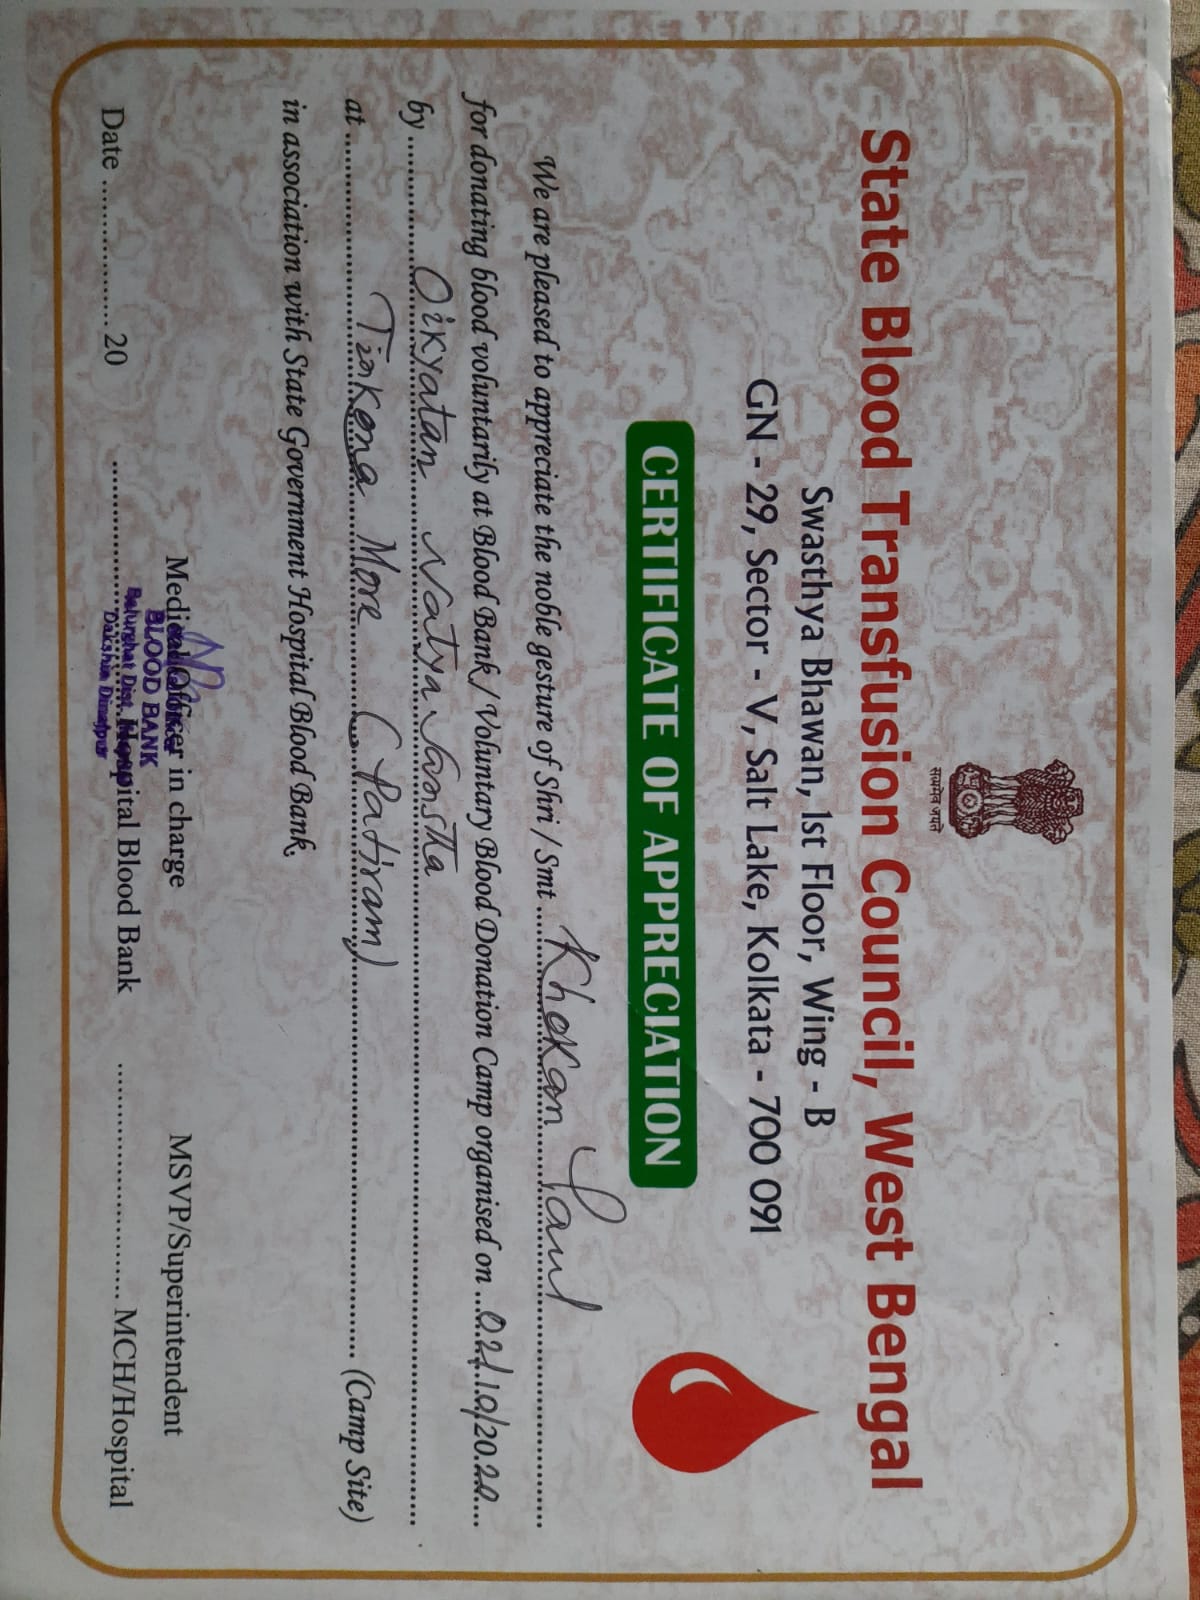 सत्यमेव जयते
State Blood Transfusion Council, West Bengal
Swasthya Bhawan, 1st Floor, Wing - B
GN - 29, Sector - V, Salt Lake, Kolkata - 700 091
CERTIFICATE OF APPRECIATION
We are pleased to appreciate the noble gesture of Shri / Smt Khokan Paul
for donating blood voluntarily at Blood Bank / Voluntary Blood Donation Camp organised on 02/10/2020
by Oikyatan Natya Sanstha
at Tinkona More (Patiram) (Camp Site)
in association with State Government Hospital Blood Bank.
Medical Officer in charge MSVP/Superintendent
BLOOD BANK
Date 20 Hospital Blood Bank MCH/Hospital
Balurghat Dist. Hospital
Dakshin Dinajpur